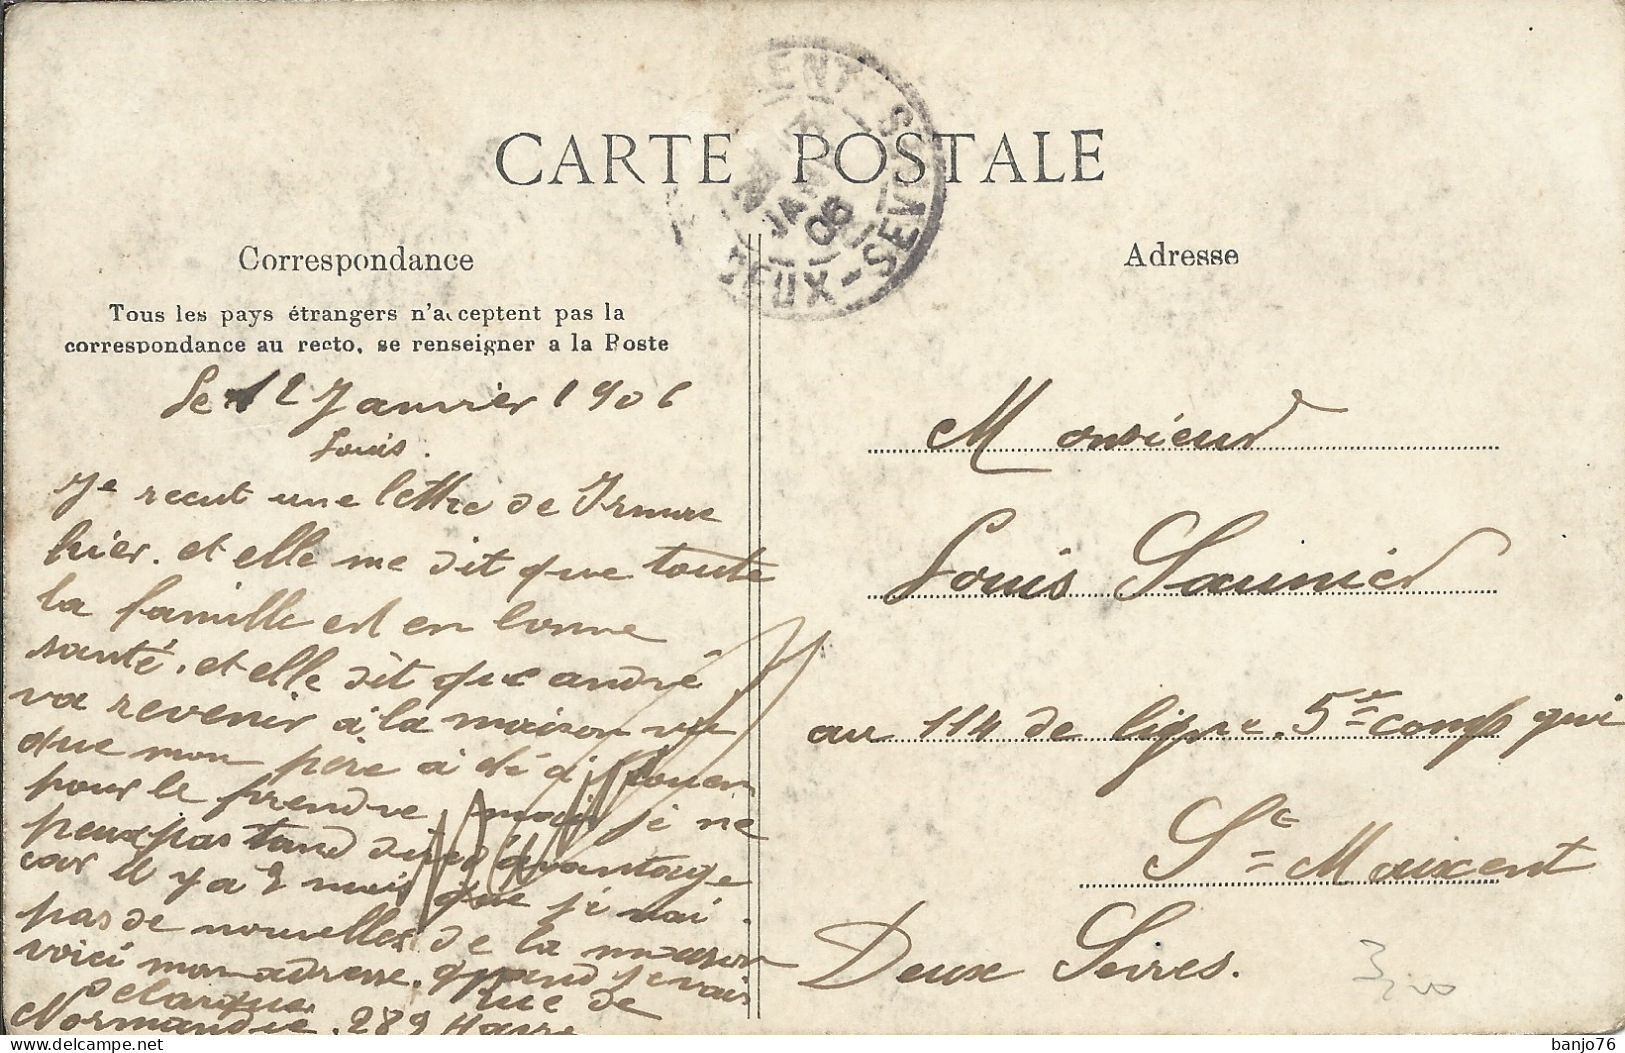 CARTE POSTALE
Correspondance
Tous les pays étrangers n'acceptent pas la
correspondance au recto, se renseigner a la Poste
Le 12 Janvier 1906
Louis.
Je recut une lettre de
hier. et elle me dit que toute
la famille est en bonne
santé. et elle dit que andré
va revenir à la maison vu
que mon père à été à Rouen
pour le prendre mais je ne
peux pas tand dire d'avantage
car il y a 2 mois que je nai
pas de nouvelles de la maison
voici mon adresse. quand je vais
Delarque rue de
Normandie. 289 Havre
Adresse
Monsieur
Louis Saunier
au 114 de ligne. 5e comp qui
St Maixent
Deux Sevres.
3,00
ENT - S
JANV
06
DEUX-SEVRES
banjo76
delcampe.net